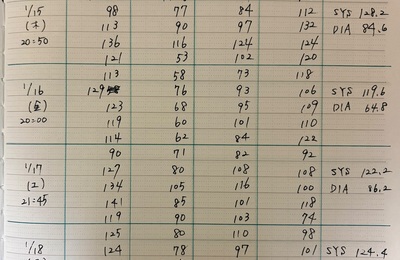 1/15 98 77 84 112 SYS 128.2
(木) 113 90 97 132 DIA 84.6
20:50 136 116 124 124
121 53 102 120
113 58 73 118
1/16 129 76 93 106 SYS 119.6
(金) 123 68 95 109 DIA 64.8
20:00 119 60 101 110
114 62 84 122
90 71 82 92
1/17 127 80 108 108 SYS 122.2
(土) 134 105 116 100 DIA 86.2
21:45 141 85 101 118
119 90 103 74
125 80 110 98
1/18 124 78 97 101 SYS 124.4